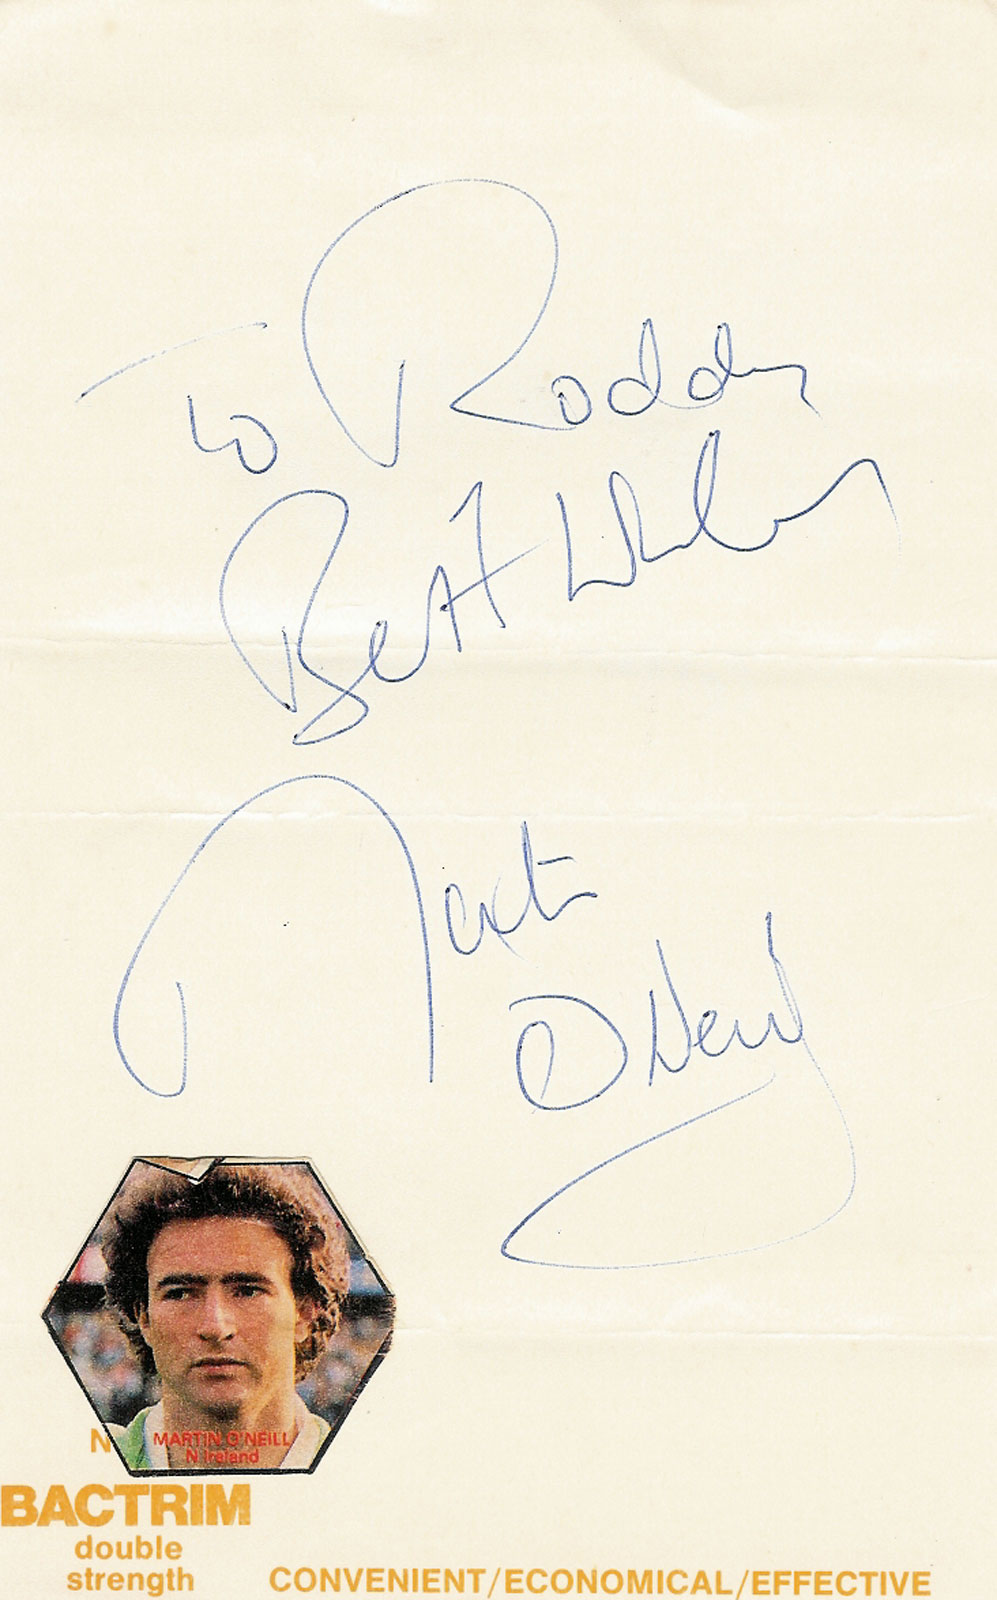 To Roddy
Best Wishes
Martin
O'Neill
MARTIN O'NEILL
N Ireland
N
BACTRIM
double
strength
CONVENIENT/ECONOMICAL/EFFECTIVE